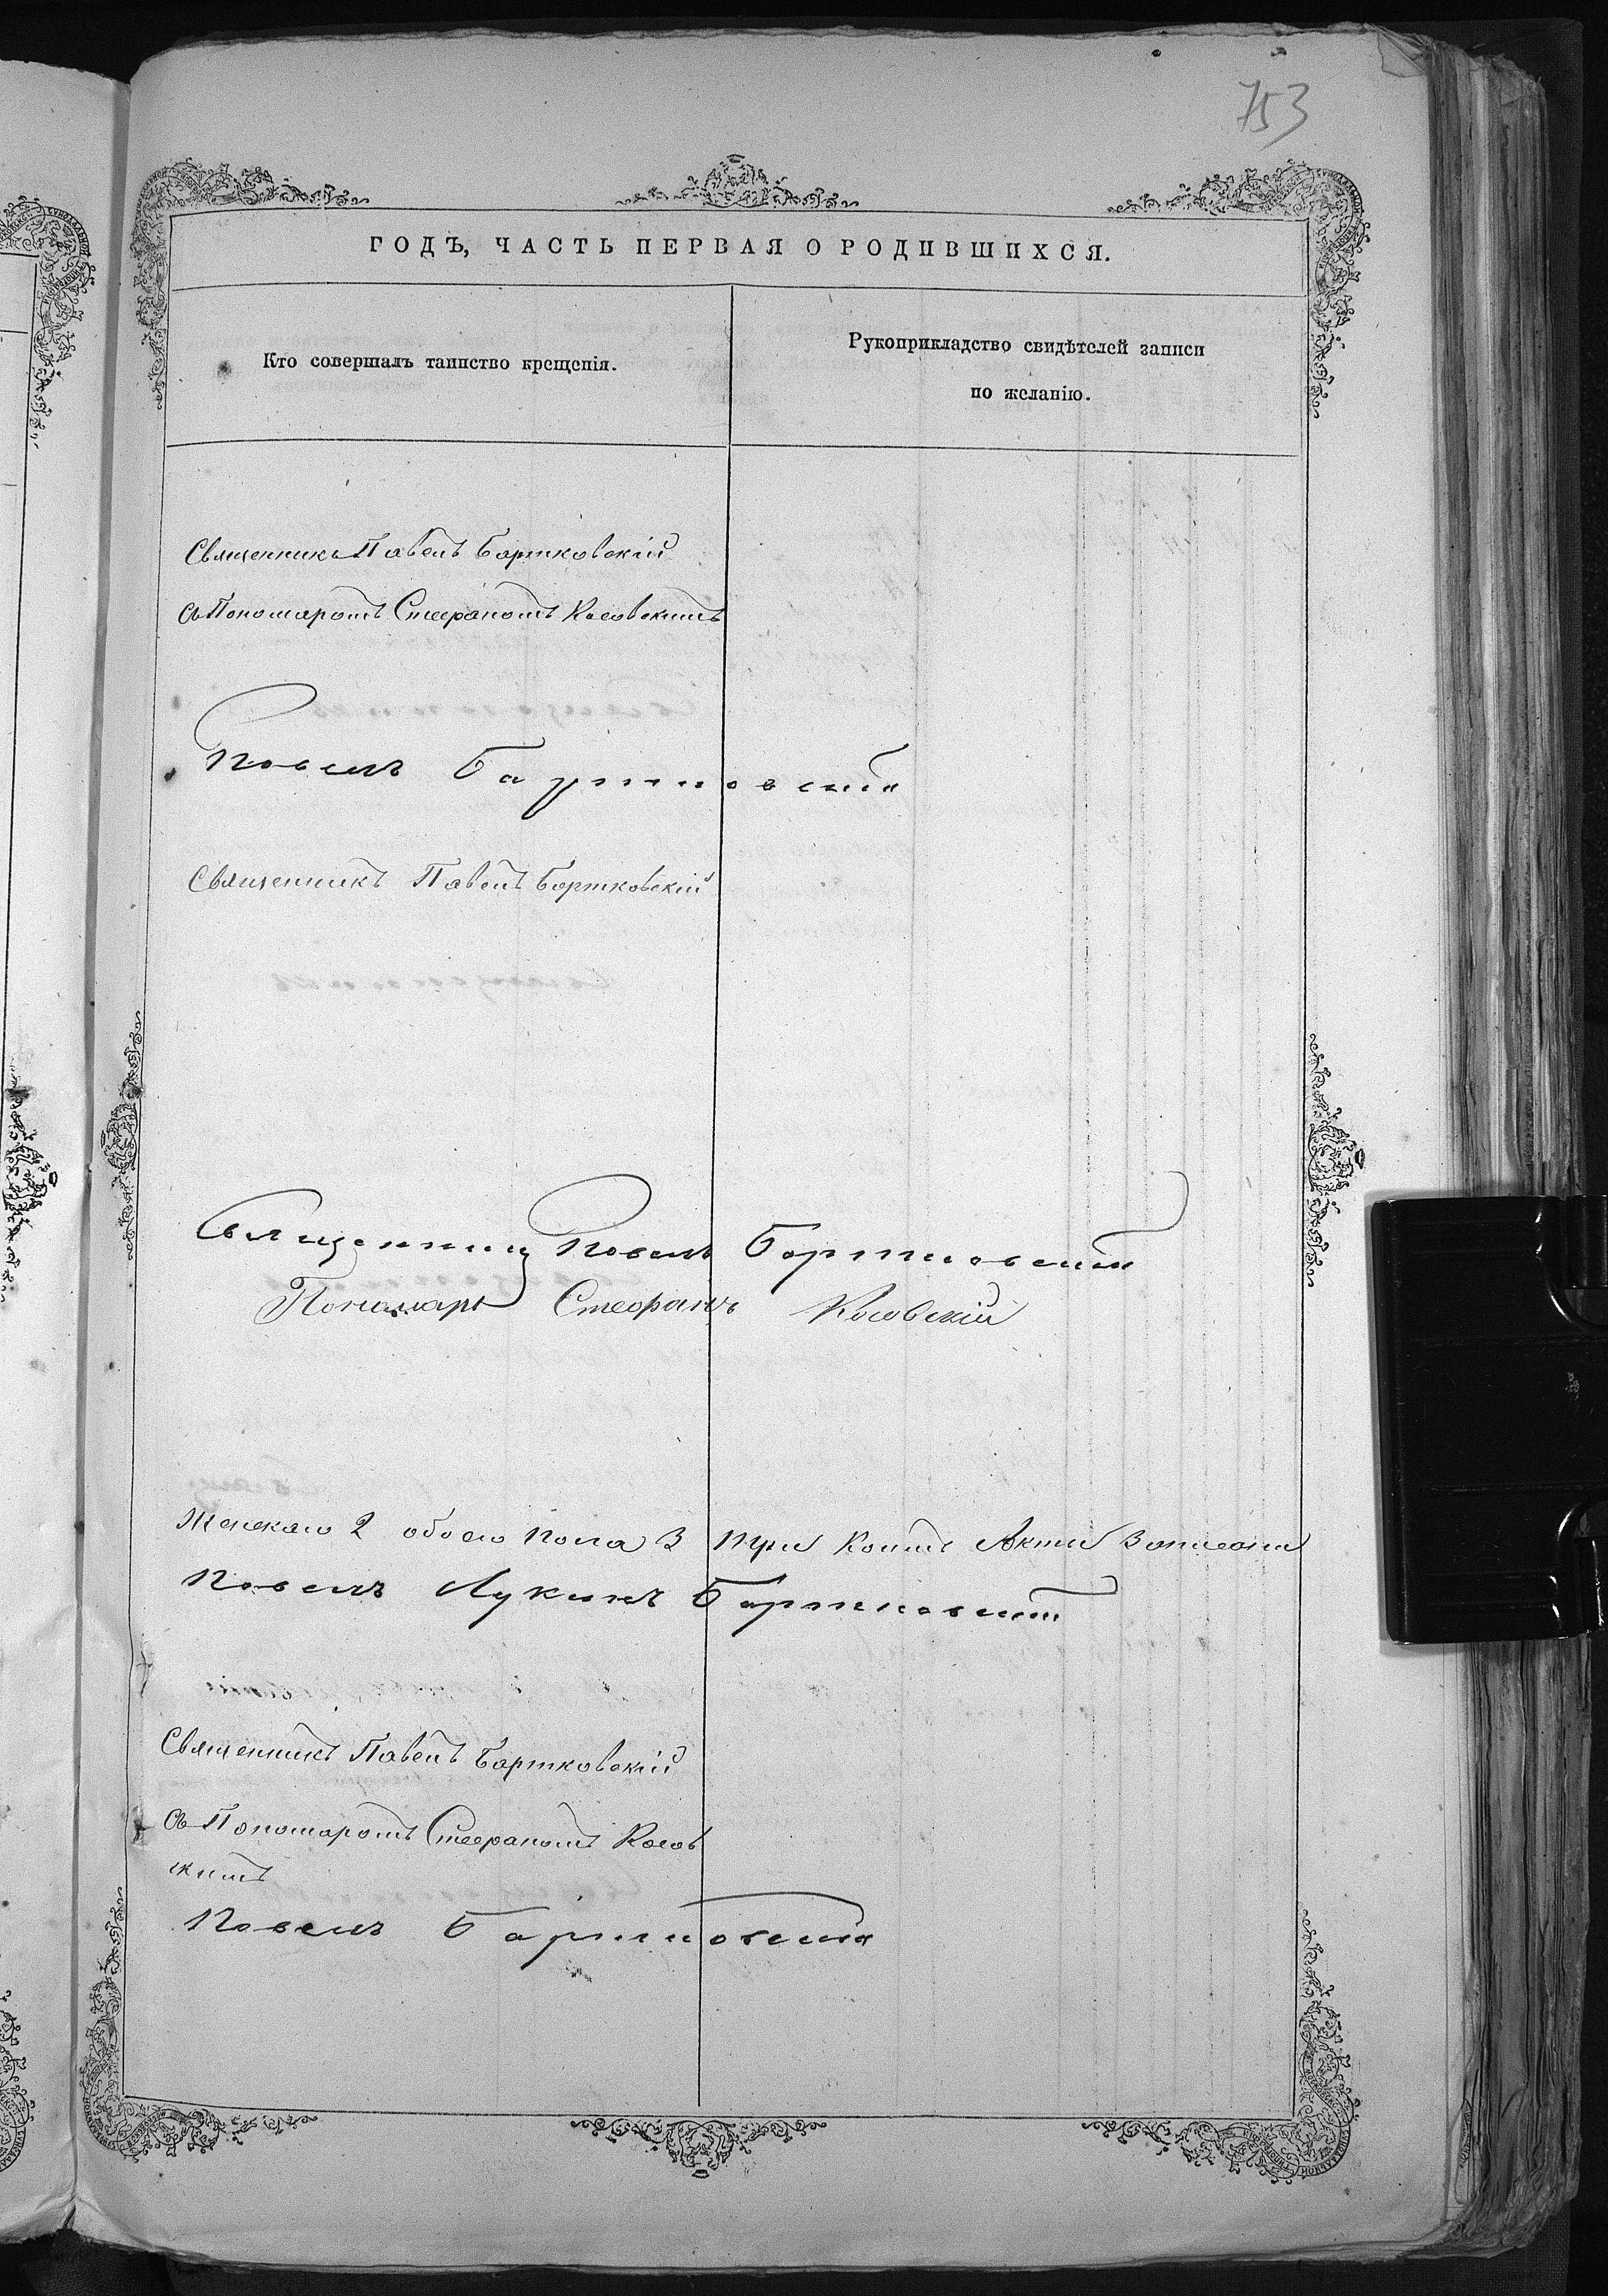 753
ГОДЪ, ЧАСТЬ ПЕРВАЯ О РОДИВШИХСЯ.
Кто совершалъ таинство крещенія.
Рукоприкладство свидѣтелей записи
по желанію.
Священникъ Павелъ Бартковскій
съ Пономаромъ Стефаномъ Косовскимъ
Павелъ Бартковскій
Священникъ Павелъ Бартковскій
Священникъ Павелъ Бартковскій
Пономарь Стефанъ Косовскій
Женскаго 2 обоего пола 3 при коимъ Акты
Павелъ Лукинъ Бартковскій
Священникъ Павелъ Бартковскій
съ Пономаромъ Стефаномъ Косов
скимъ
Павелъ Бартковскій